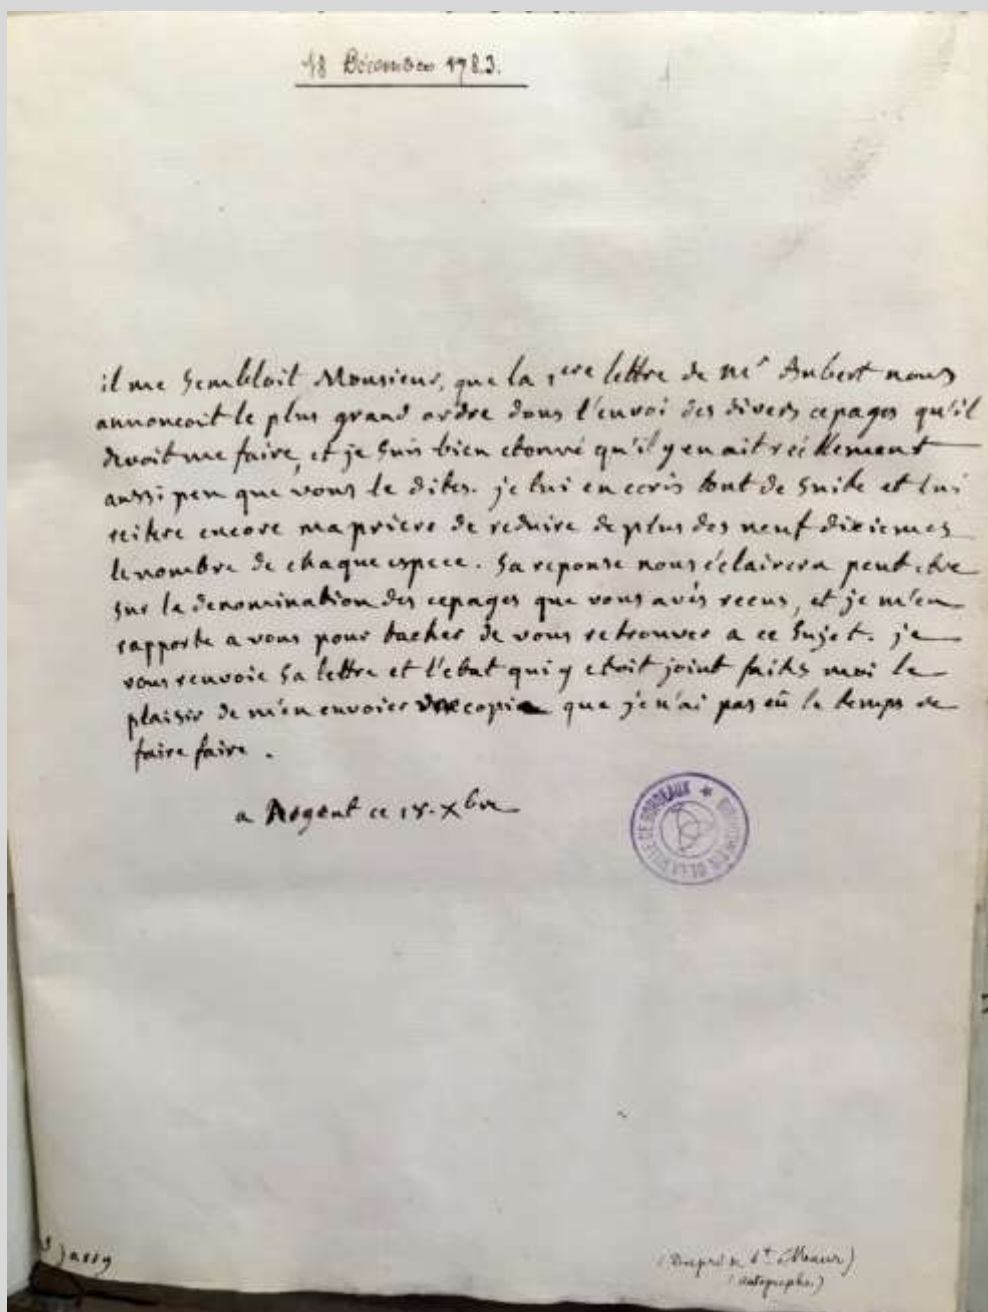 18 Décembre 1783.
il me sembloit Monsieur, que la 1ere lettre de Mr Aubert nous
annoncoit le plus grand ordre dans l'envoi des divers cepages qu'il
devoit me faire, et je suis bien etonné qu'il y en ait réellement
aussi peu que vous le dites. je lui en ecris tout de suite et lui
reitere encore ma priere de reduire de plus des neuf dixiemes
le nombre de chaque espece. sa reponse nous éclairera peut etre
sur la denomination des cepages que vous avés recus, et je m'en
rapporte a vous pour tacher de vous retrouver a ce sujet. je
vous renvoie sa lettre et l'etat qui y etoit joint faites moi le
plaisir de m'en envoier copie que je n'ai pas eû le temps de
faire faire.
a Nogent ce 18. Xbre
DE LA VILLE DE BORDEAUX
(Dupré de St Maur)
(autographe.)